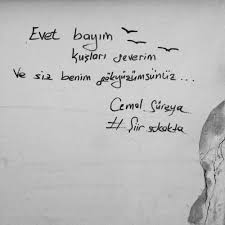 Evet bayım
kuşları severim
Ve siz benim gökyüzümsünüz...
Cemal Süreya
# Şiir sokakta